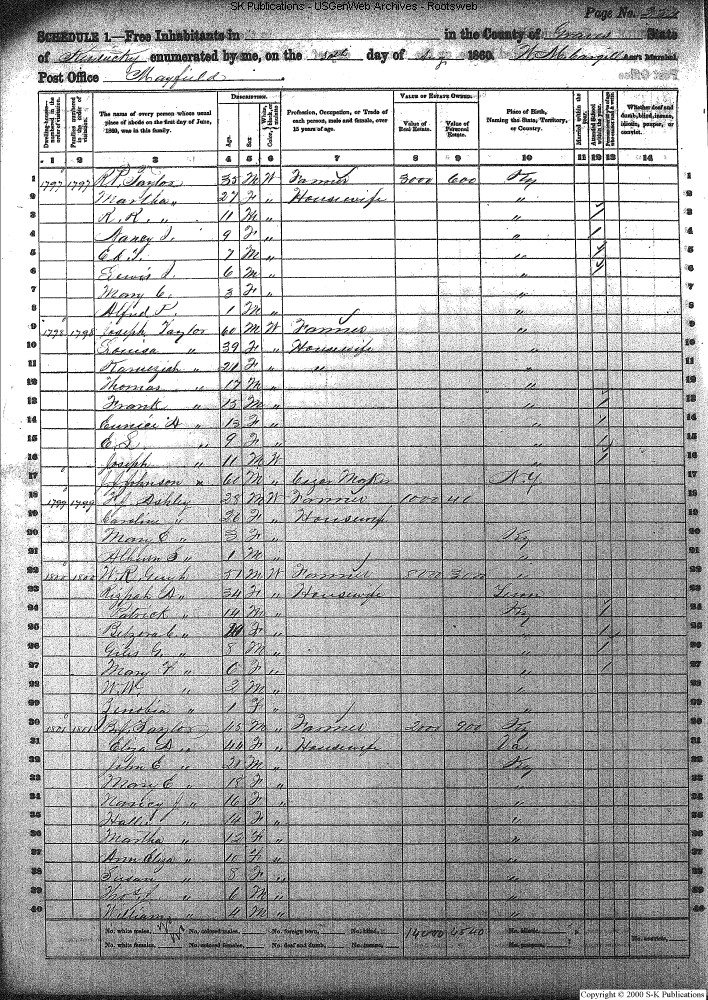 SK Publications - USGenWeb Archives - Rootsweb
Page No. 323
SCHEDULE 1.—Free Inhabitants in in the County of Graves State
of Kentucky enumerated by me, on the day of Aug 1860. Ass't Marshal.
Post Office Mayfield
Dwelling-houses—numbered in the order of visitation.
Families numbered in the order of visitation.
The name of every person whose usual place of abode on the first day of June, 1860, was in this family.
DESCRIPTION.
Age.
Sex.
Color, White, black, or mulatto.
Profession, Occupation, or Trade of each person, male and female, over 15 years of age.
VALUE OF ESTATE OWNED.
Value of Real Estate.
Value of Personal Estate.
Place of Birth, Naming the State, Territory, or Country.
Married within the year.
Attended School within the year.
Whether deaf and dumb, blind, insane, idiotic, pauper, or convict.
1 2 3 4 5 6 7 8 9 10 11 12 13 14
1 1797 1797 R. P. Taylor 35 M W Farmer 3000 600 Ky 1
2 Martha " 27 F " Housewife " 2
3 R. R. " 11 M " " / 3
4 Nancy J. 9 F " " / 4
5 7 M " " / 5
6 Lewis J. 6 M " " / 6
7 Mary C. 3 F " " 7
8 Alfred P. 1 M " " 8
9 1798 1798 Joseph Taylor 60 M W Farmer " 9
10 Louisa " 39 F " Housewife " 10
11 " 21 F " " " 11
12 Thomas " 17 M " " 12
13 Frank " 15 M " " / 13
14 Eunice A " 13 F " " / 14
15 E S " 9 F " " / 15
16 Joseph " 11 M W " / 16
17 Johnson 60 M " Cigar Maker N. Y 17
18 1799 1799 Ashley 28 M W Farmer 1000 40 18
19 Caroline " 26 F " Housewife 19
20 Mary E " 3 F " Ky 20
21 1 M " " 21
22 1800 1800 W. R. 51 M W Farmer 8000 3000 " 22
23 Rizpah A " 34 F " Housewife Tenn 23
24 Patrick " 14 M " Ky / 24
25 " F " " / 25
26 Giles G. " 8 M " " / 26
27 Mary F " 6 F " " / 27
28 W. W. " 2 M " " 28
29 Zenobia " 1 F " " 29
30 1801 1801 Taylor 45 M " Farmer 2000 900 Ky 30
31 Eliza A " 44 F " Housewife Va 31
32 John E " 21 M " Ky 32
33 Mary E " 18 F " " 33
34 Nancy J " 16 F " " 34
35 " 14 F " " 35
36 Martha " 12 F " " 36
37 Ann Eliza " 10 F " " 37
38 Susan " 8 F " " 38
39 " 6 M " " 39
40 William " 4 M " " 40
No. white males, No. colored males, No. foreign born, No. blind, 14000 4540 No. idiotic, No. convicts,
No. white females, No. colored females, No. deaf and dumb, No. insane, No. paupers,
Copyright © 2000 S-K Publications